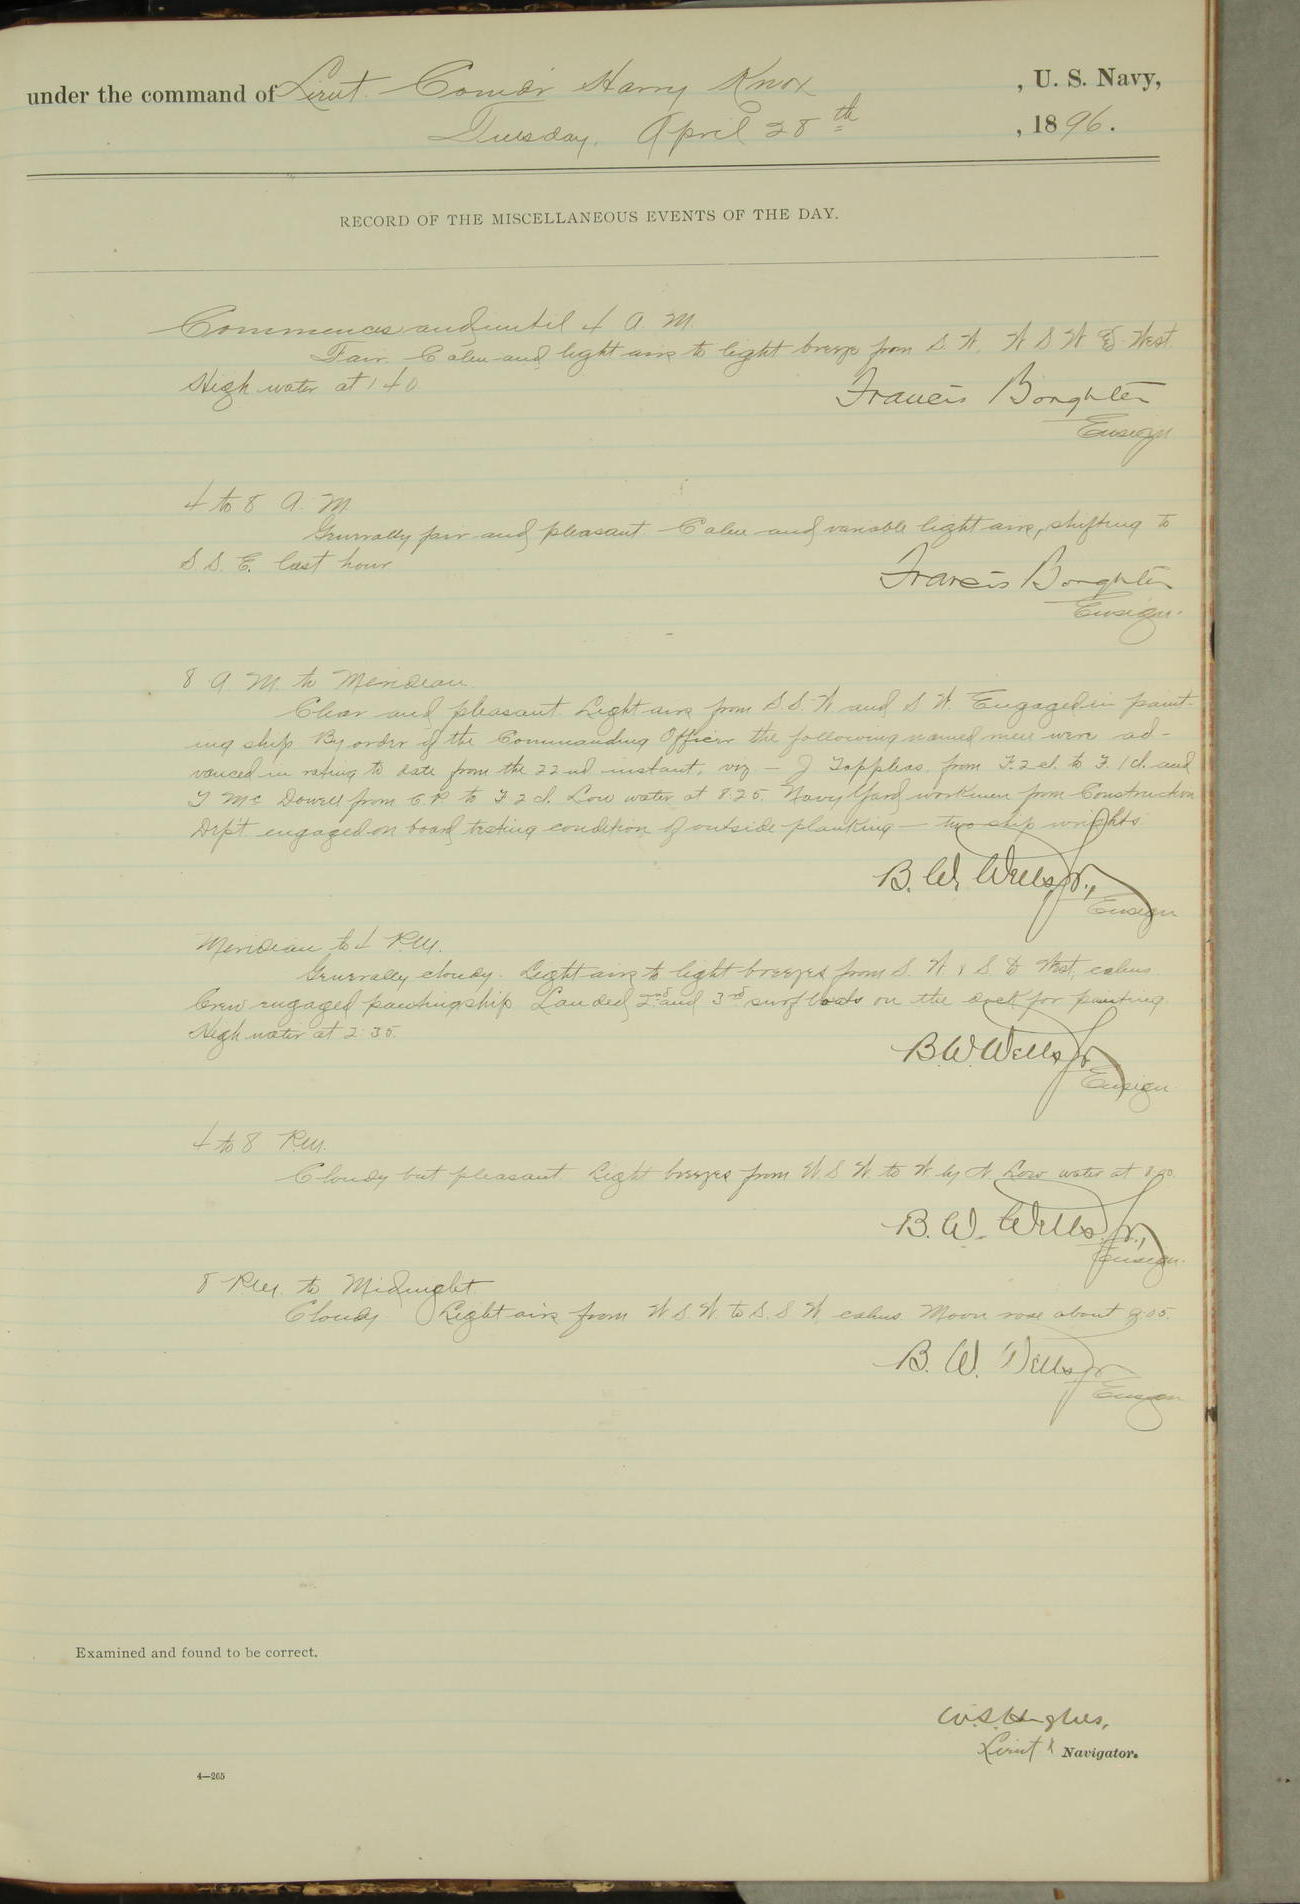 under the command of Lieut. Comdr Harry Knox, U. S. Navy,
Tuesday, April 28th, 1896.
RECORD OF THE MISCELLANEOUS EVENTS OF THE DAY.
Commences and until 4 A. M.
Fair. Calm and light airs to light breeze from S. W. W S W & West.
High water at 1 40
Francis Boughter
Ensign
4 to 8 A. M.
Generally fair and pleasant. Calm and variable light airs, shifting to
S. S. E. last hour
Francis Boughter
Ensign.
8 A. M. to Meridian
Clear and pleasant. Light airs from S S. W and S W. Engaged in paint-
ing ship. By order of the Commanding Officer the following named men were ad-
vanced in rating to date from the 22nd instant, viz — J from F. 2 cl. to F. 1 cl. and
T Mc Dowell from C. P. to F 2 cl. Low water at 8.25. Navy Yard workmen from Construction
Dep't engaged on board testing condition of outside planking — two ship wrights
B. W. Wells, Jr.,
Ensign
Meridian to 4 P.M.
Generally cloudy. Light airs to light breezes from S. W & S. to West, calms.
Crew engaged painting ship. Landed 2nd and 3rd surf boats on the dock for painting.
High water at 2.35.
B. W. Wells Jr
Ensign
4 to 8 P.M.
Cloudy but pleasant. Light breezes from W S W to W by N. Low water at
B. W. Wells, Jr.,
Ensign.
8 P.M. to Midnight
Cloudy. Light airs from W S. W. to S. S W, calms. Moon rose about
B. W. Wells Jr
Ensign
Examined and found to be correct.
W. S. Hughes,
Lieut & Navigator.
4—265